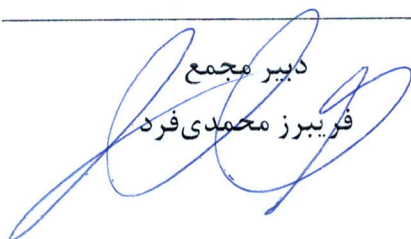 دبیر مجمع
فریبرز محمدی‌فرد